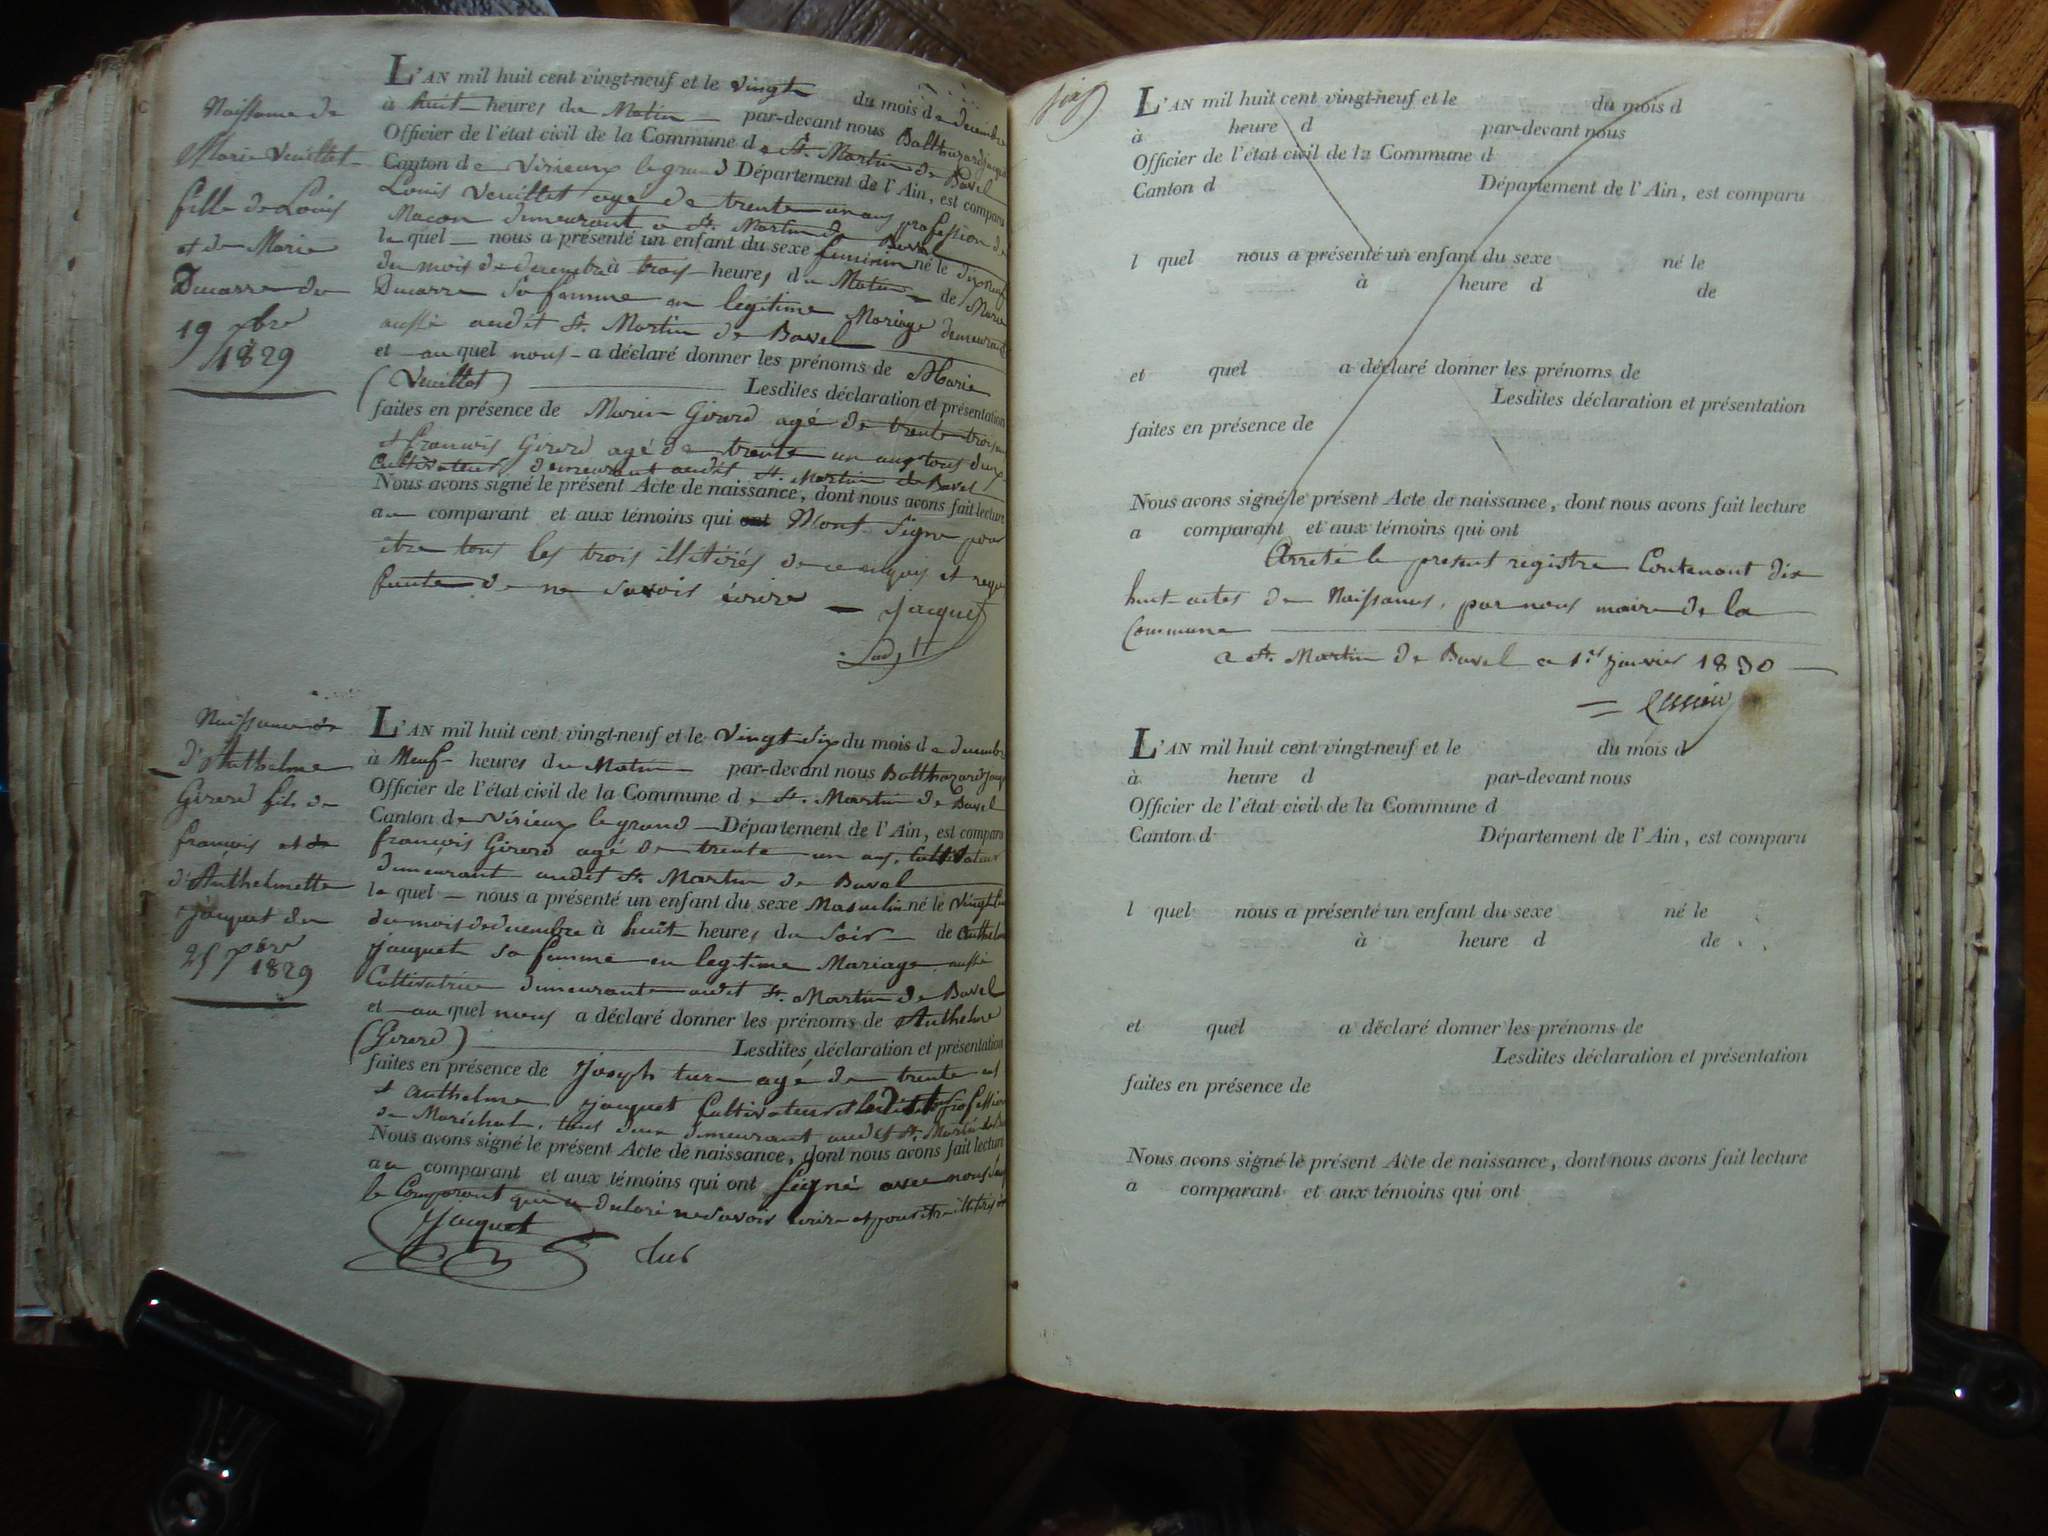 Naissance de
Marie Veuillet
fille de Louis
et de Marie
Ducarre du
19 Xbre
1829
L'AN mil huit cent vingt-neuf et le vingt du mois de decembre
à huit heures du Matin par-devant nous Balthazard Jacquet
Officier de l'état civil de la Commune de St. Martin de Bavel
Canton de Virieux le grand Département de l'Ain, est comparu
Louis Veuillet age de trente un ans profession de
Macon demeurant a St. Martin de Bavel
le quel nous a présenté un enfant du sexe feminin né le dix neuf
du mois de decembre à trois heures du Matin de Marie
Ducarre sa femme en legitime Mariage demeurant
aussi audit St. Martin de Bavel
et au quel nous a déclaré donner les prénoms de Marie
(Veuillet) Lesdites déclaration et présentation
faites en présence de Marin Girerd agé de trente trois ans
et francois Girerd agé de trente un ans tous deux
Cultivateurs demeurant audit St. Martin de Bavel
Nous avons signé le présent Acte de naissance, dont nous avons fait lecture
au comparant et aux témoins qui ont N'ont Signe pour
être tous les trois illitirés de ce enquis et requis
de ne savoir écrire Jacquet
Adjt
Naissance de
d'Anthelme
Girerd fils de
françois et de
d'Anthelmette
Jacquet du
25 Xbre
1829
L'AN mil huit cent vingt-neuf et le Vingt Six du mois de decembre
à Neuf heures du Matin par-devant nous Balthazard Jacquet
Officier de l'état civil de la Commune de St. Martin de Bavel
Canton de Virieux le grand Département de l'Ain, est comparu
françois Girerd agé de trente un ans, Cultivateur
demeurant audit St. Martin de Bavel
le quel nous a présenté un enfant du sexe Masculin né le Vingt
du mois de decembre à huit heures du Soir de
Jacquet sa femme en legitime Mariage aussi
Cultivatrice demeurante audit St. Martin de Bavel
et au quel nous a déclaré donner les prénoms de Anthelme
(Girerd) Lesdites déclaration et présentation
faites en présence de Joseph agé de trente ans
et Anthelme Jacquet Cultivateur profession
de Maréchal, tous deux demeurant audit St. Martin de
Nous avons signé le présent Acte de naissance, dont nous avons fait lecture
au comparant et aux témoins qui ont Signé avec nous
le Comparant qui a declaré ne savoir écrire et pour être
Jacquet
L'AN mil huit cent vingt-neuf et le du mois d
à heure d par-devant nous
Officier de l'état civil de la Commune d
Canton d Département de l'Ain, est comparu
l quel nous a présenté un enfant du sexe né le
à heure d de
et quel a déclaré donner les prénoms de
Lesdites déclaration et présentation
faites en présence de
Nous avons signé le présent Acte de naissance, dont nous avons fait lecture
a comparant et aux témoins qui ont
Arrêté le present registre Contenant dix
huit actes de Naissances, par nous maire de la
Commune
a St. Martin de Bavel a 1er janvier 1830
L'AN mil huit cent vingt-neuf et le du mois d
à heure d par-devant nous
Officier de l'état civil de la Commune d
Canton d Département de l'Ain, est comparu
l quel nous a présenté un enfant du sexe né le
à heure d de
et quel a déclaré donner les prénoms de
Lesdites déclaration et présentation
faites en présence de
Nous avons signé le présent Acte de naissance, dont nous avons fait lecture
a comparant et aux témoins qui ont